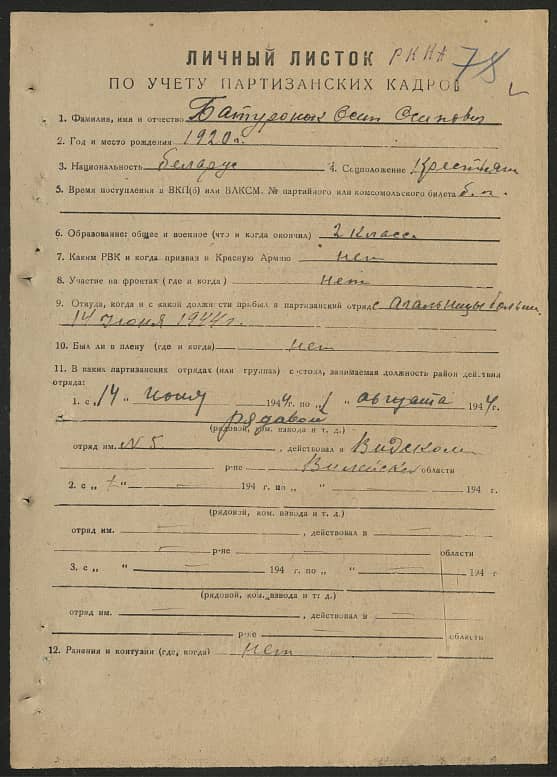 ЛИЧНЫЙ ЛИСТОК РККА 78
ПО УЧЕТУ ПАРТИЗАНСКИХ КАДРОВ
1. Фамилия, имя и отчество Батуронок Осип Осипович
2. Год и место рождения 1920г.
3. Национальность беларус 4. Соцположение крестьян
5. Время поступления в ВКП(б) или ВЛКСМ. № партийного или комсомольского билета б.п.
6. Образование: общее и военное (что и когда окончил) 2 класс.
7. Каким РВК и когда призван в Красную Армию нет
8. Участие на фронтах (где и когда) нет
9. Откуда, когда и с какой должности прибыл в партизанский отряд с
14 июня 1944г.
10. Был ли в плену (где и когда) нет
11. В каких партизанских отрядах (или группах) состоял, занимаемая должность район действия
отряда:
1. с „14 " июня 1944г. по „1 " августа 1944г.
рядовой
(рядовой, ком. взвода и т. д.)
отряд им. N 5. , действовал в Видском
р-не Вилейской области
2. с „ " 194 г. по „ " 194 г.
(рядовой, ком. взвода и т. д.)
отряд им. , действовал в
р-не области
3. с „ " 194 г. по „ " 194 г
(рядовой, ком. взвода и т. д.)
отряд им. , действовал в
р-не области
12. Ранения и контузия (где, когда) нет